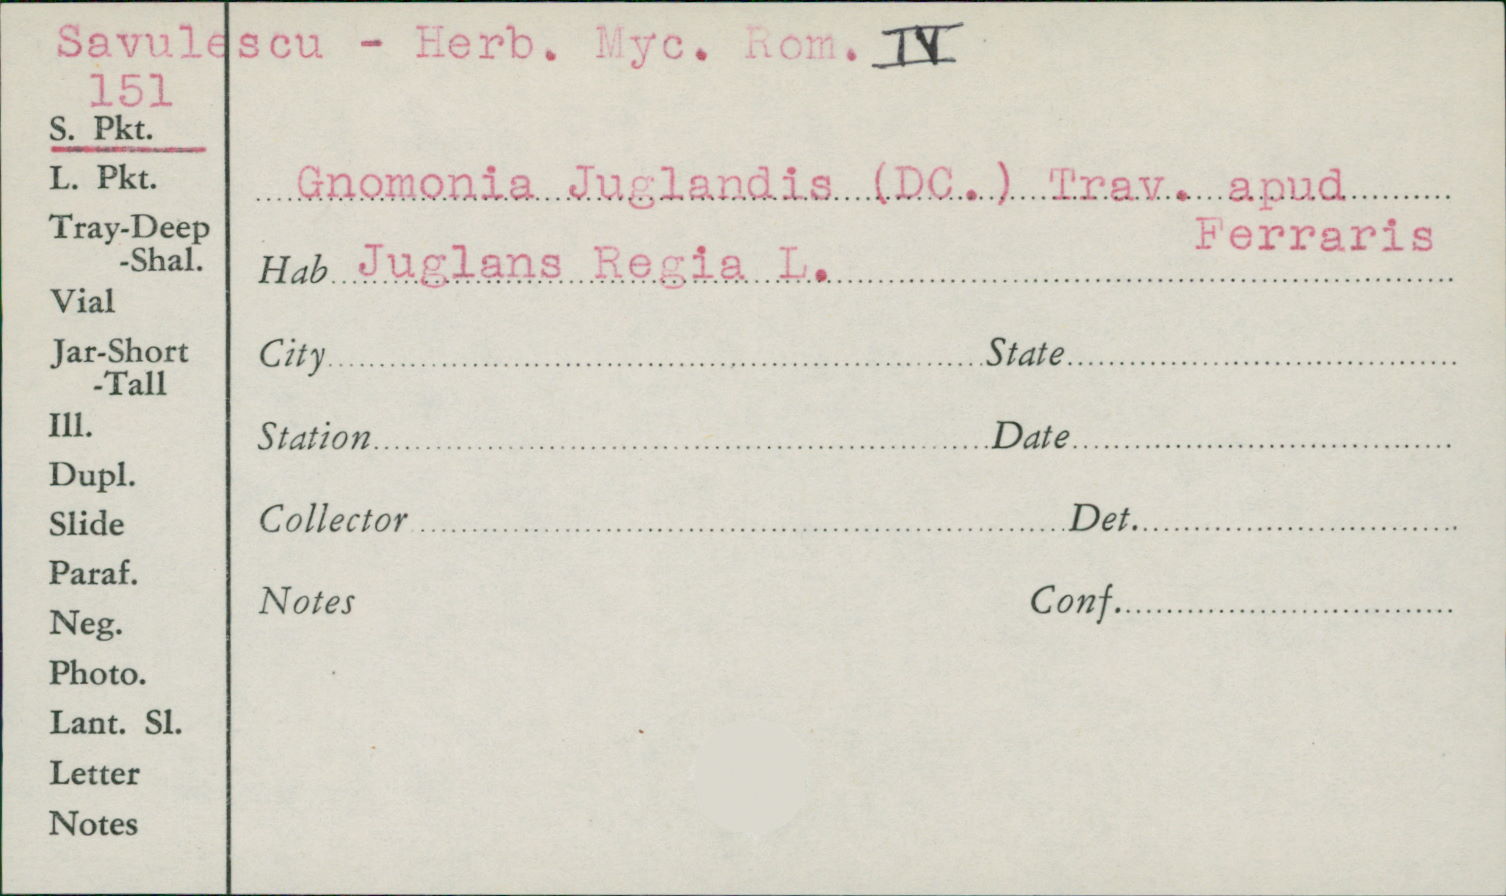 Savulescu - Herb. Myc. Rom. IV
151
S. Pkt.
L. Pkt.
Tray-Deep
-Shal.
Vial
Jar-Short
-Tall
Ill.
Dupl.
Slide
Paraf.
Neg.
Photo.
Lant. Sl.
Letter
Notes
Gnomonia Juglandis (DC.) Trav. apud
Ferraris
Hab Juglans Regia L.
City State
Station Date
Collector Det.
Notes Conf.